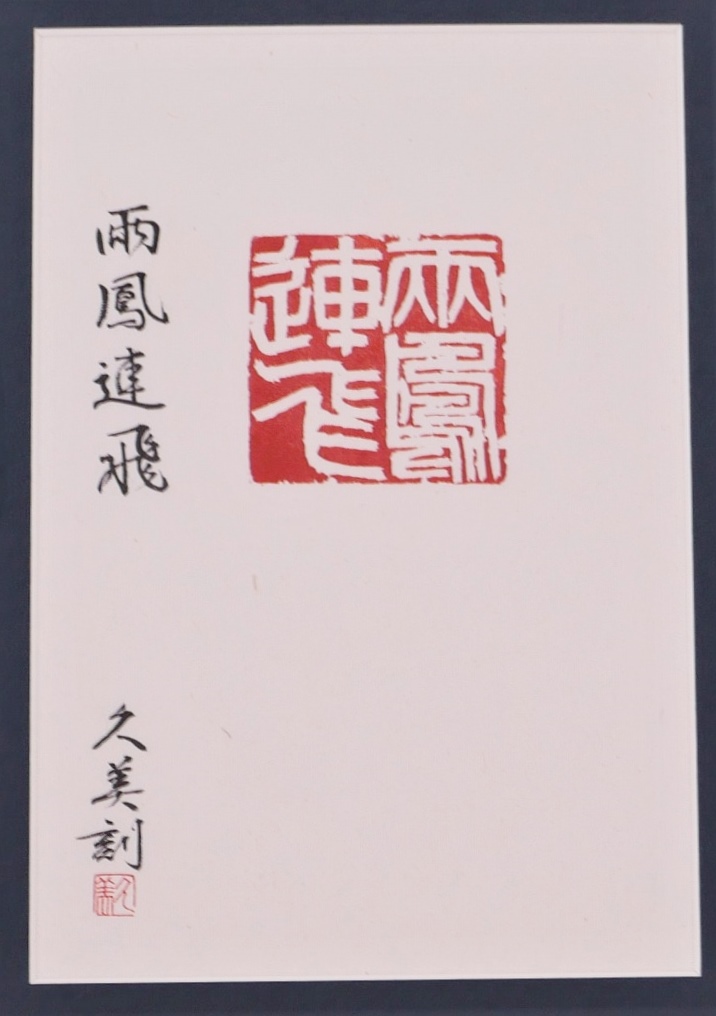 兩鳳
連飛
兩鳳連飛
久美刻
久美